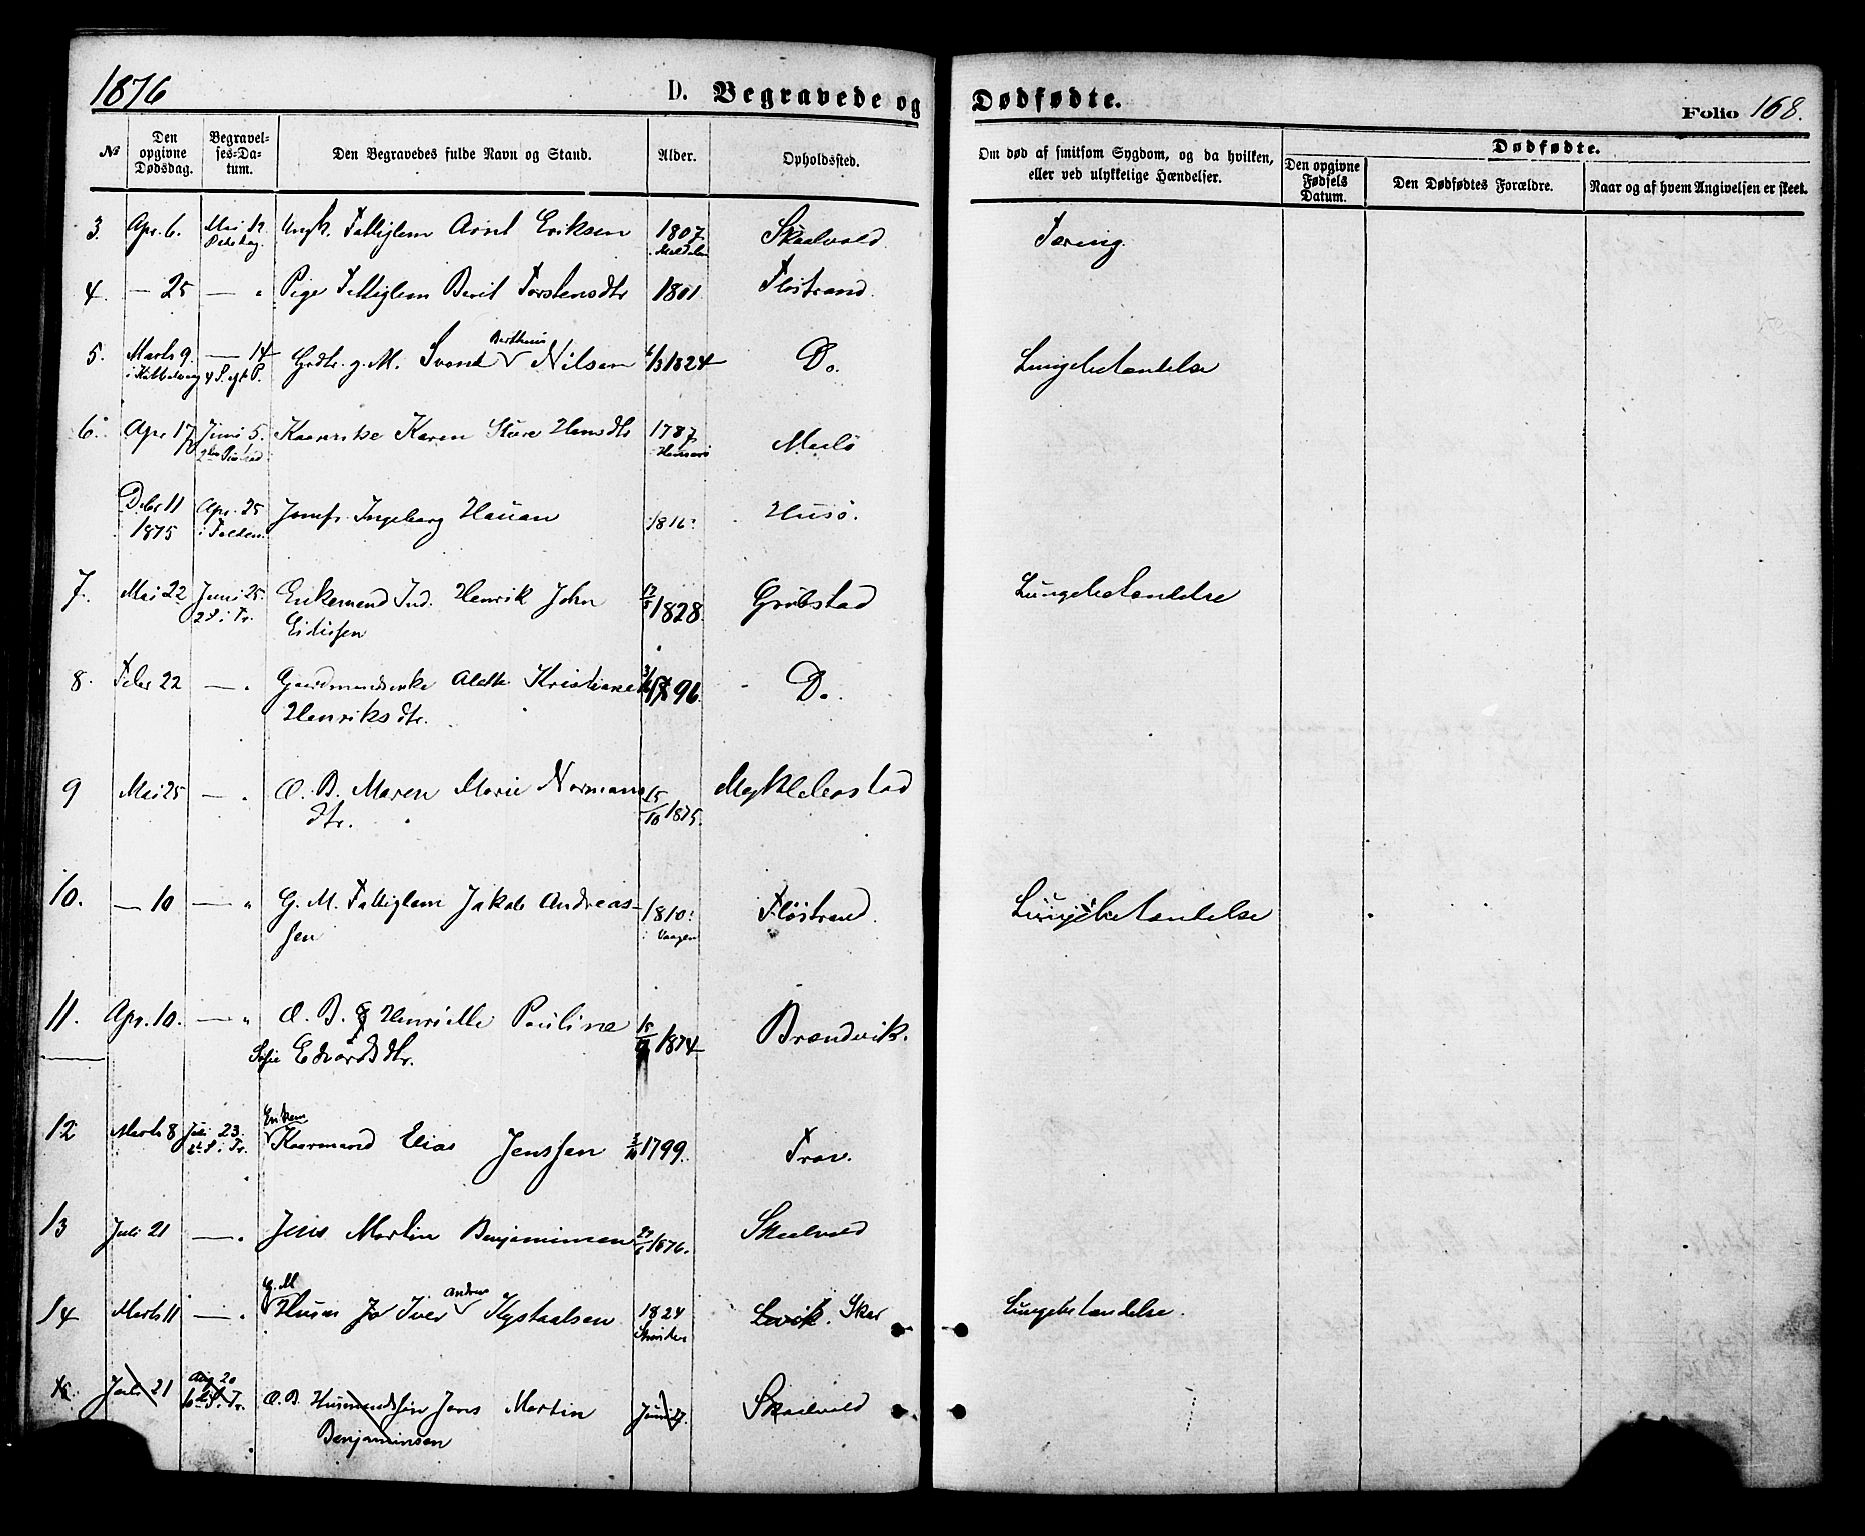 1876
D. Begravede og Dødfødte.
Folio 168.
No
Den opgivne Dødsdag.
Begravel-ses-Da-tum.
Den Begravedes fulde Navn og Stand.
Alder.
Opholdssted.
Om død af smitsom Sygdom, og da hvilken, eller ved ulykkelige Hændelser.
Dødfødte.
Den opgivne Fødsels Datum.
Den Dødfødtes Forældre.
Naar og af hvem Angivelsen er skeet.
3. Apr. 6. Mai 12. Ungk. Fattiglem Arnt Eriksen 1807. Skaalvold. Tæring.
4. — 25 — " Pige Fattiglem Berit Torstensdtr 1801. Flostrand.
5. Marts 9. — 14 Grdbr. g. M. Svend Bertheus Nilsen 6/3 1824 Do. Lungebetændelse
4 S. eft P.
6. Apr. 17 Juni 5. Kaarrike Karen Sture Hansdtr 1787.
Decbr 11 Apr. 25 Jomfr. Ingeborg Hauan 1816. Husö.
1875
7. Mai 22 Juni 25. Enkemand Ind. Henrik John 1828. Gröbstad Lungebetændelse
2 S. i Tr. Eidissen
8. Febr 22 — " Gaardmandsenke Aleth Kristiane 1796. Do.
Henriksdtr.
9 Mai 25 — " Æ. B. Maren Marie Normans 15/10 1875. Myklebostad
dtr.
10. — 10 — " G. M. Fattiglem Jakob Andreas- 1810. Flöstrand. Lungebetændelse
sen
11. Apr. 10. — " Æ. B. Henriette Pauline 1874 Brændvik.
Sofie Edvardsdtr.
12 Marts 8 Juli 23. Enkem Kaarmand Elias Jenssen 1799.
13 Juli 21 — " Jens Martin Benjaminsen 1876. Skaalvold
14 Marts 11 — " G. M Husm Jo Iver Andreas Kystaalsen 1824 Lungebetændelse.
15. Juli 21 Aug 20 Æ. B. Husmandssøn Jens Martin Skaalvold
Benjaminsen